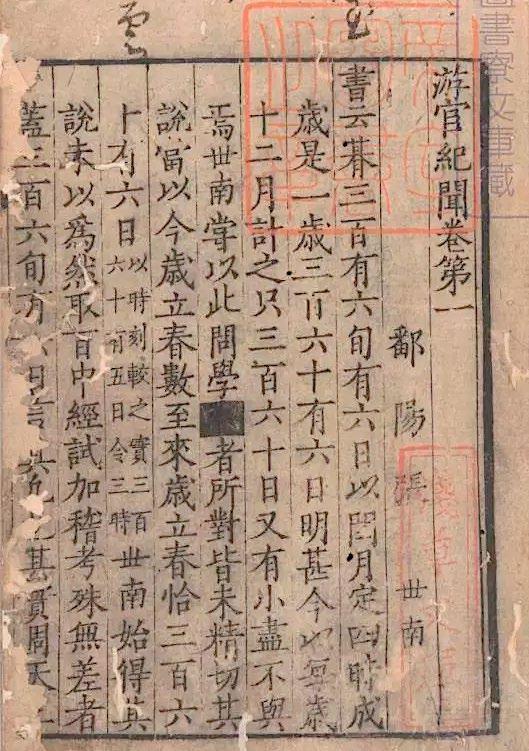 圖書寮文庫藏
游宦紀聞卷第一
鄱陽張 世南
書云朞三百有六旬有六日以閏月定四時成
歲是一歲三百六十有六日明甚今以每歲
十二月計之只三百六十日又有小盡不與
焉世南嘗以此問學者所對皆未精切其
說當以今歲立春數至來歲立春恰三百六
十有六日
以時刻較之實三百
六十有五日令三時
世南始得其
說未以爲然取百中經試加稽考殊無差者
蓋三百六旬有六日言其其實周天